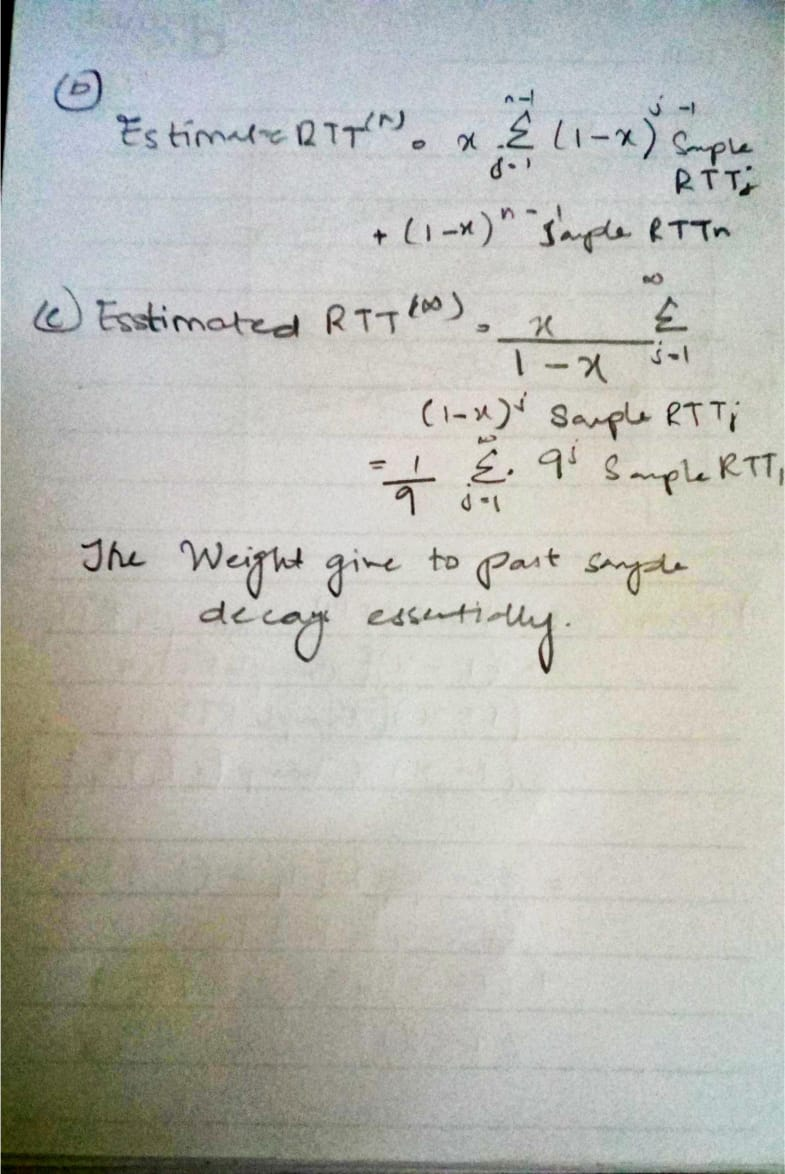 (b)
Estimate RTT^(n) = x Σ_{j=1}^{n-1} (1-x)^{j-1} Sample RTTj
+ (1-x)^{n-1} Sample RTTn
(c) Esstimated RTT^(∞) = x/(1-x) Σ_{j=1}^{∞}
(1-x)^j Sample RTTj
= 1/9 Σ_{j=1}^{∞} .9^j Sample RTTj
The Weight give to past sample
decays essentially.